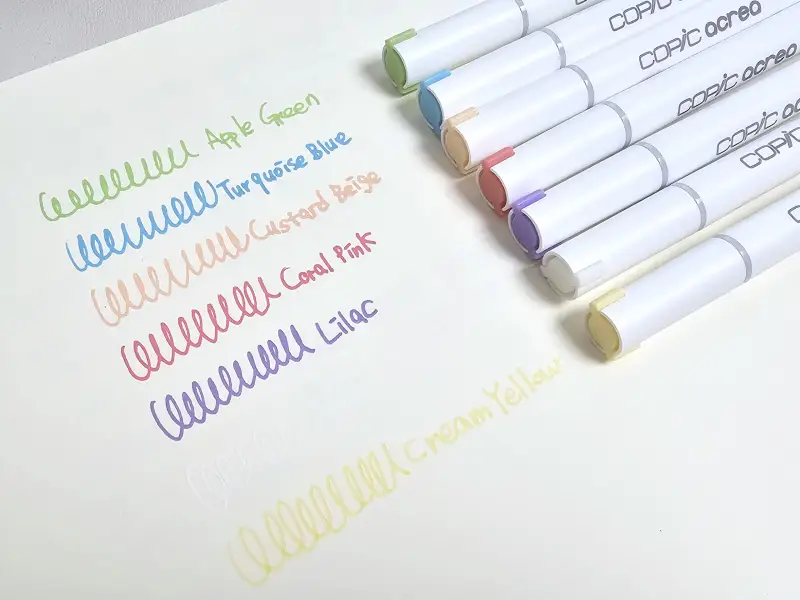 Apple Green
Turquoise Blue
Custard Beige
Coral Pink
Lilac
Cream Yellow
COPIC
COPIC acrea
COPIC acrea
COPIC acrea
COPIC